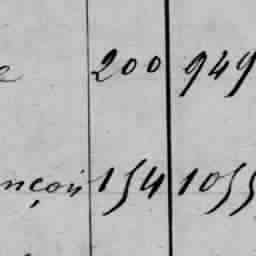 200 949
nçois 154 1055